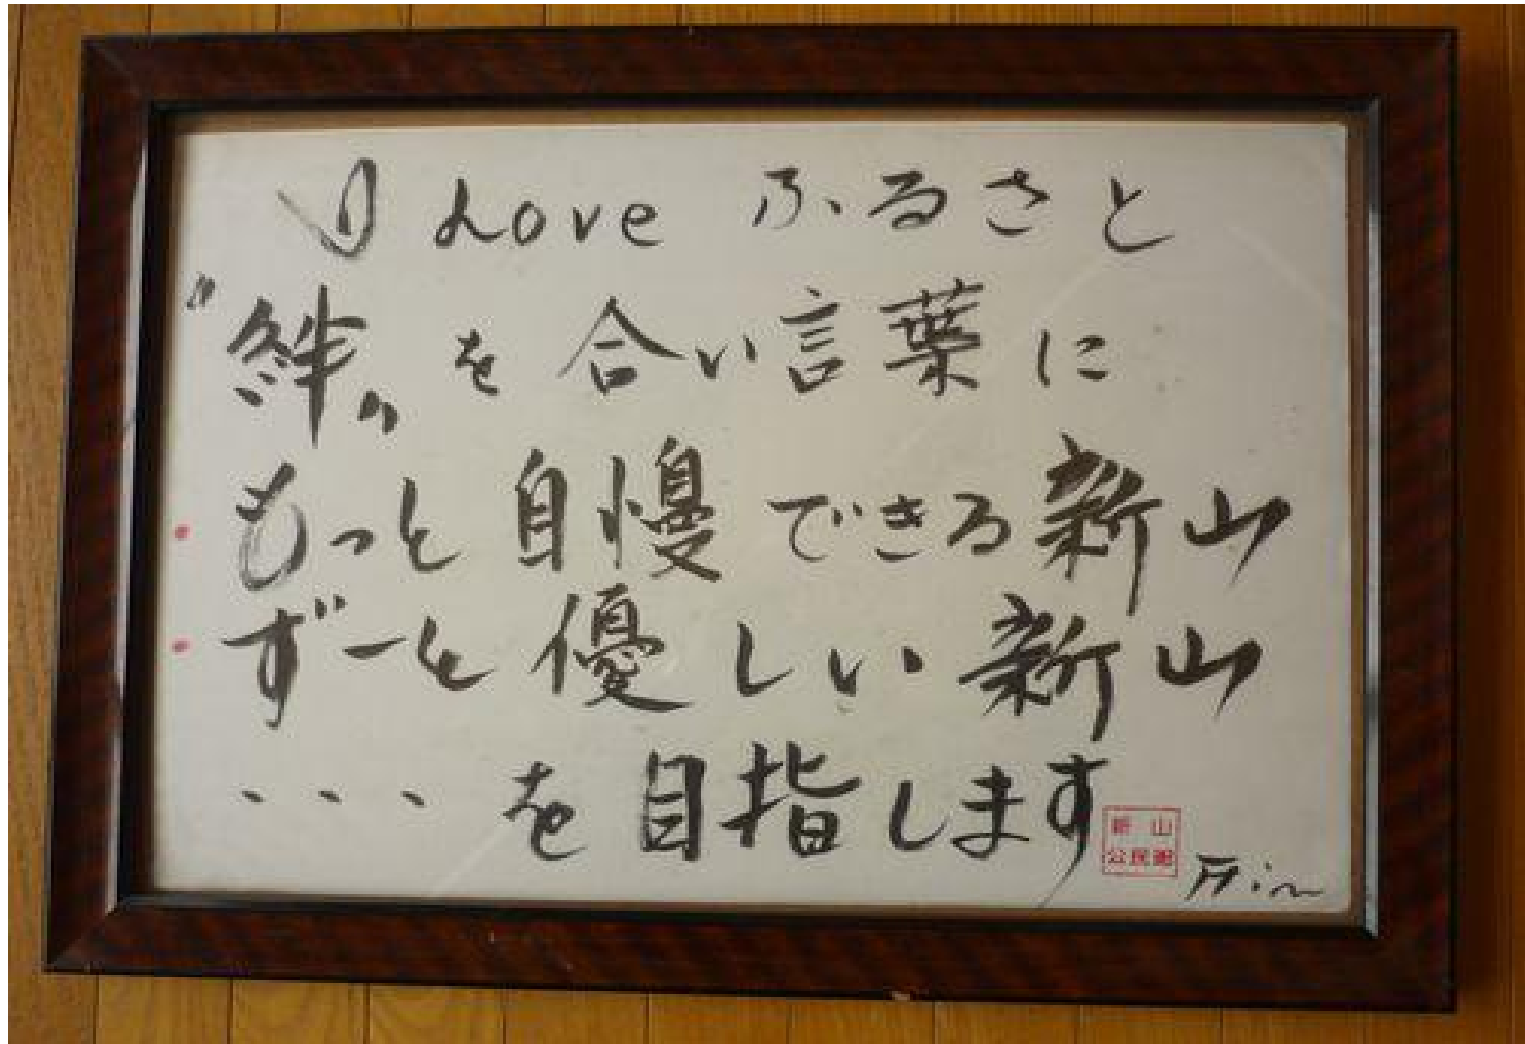 I Love ふるさと
〝絆〟を合い言葉に
・もっと自慢できる新山
・ずーと優しい新山
・・・を目指します
新山
公民館